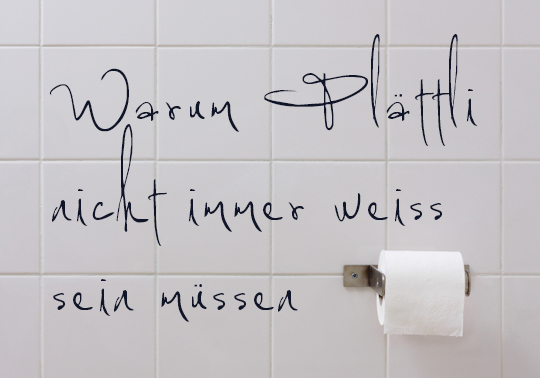 Warum Plättli
nicht immer weiss
sein müssen